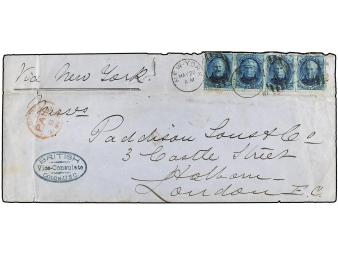 Via New York.
NEW-YORK
MAY 20
Messrs
Paddison Sons & Co
3 Castle Street
Holborn
London E.C.
PAID
BRITISH
Vice-Consulate